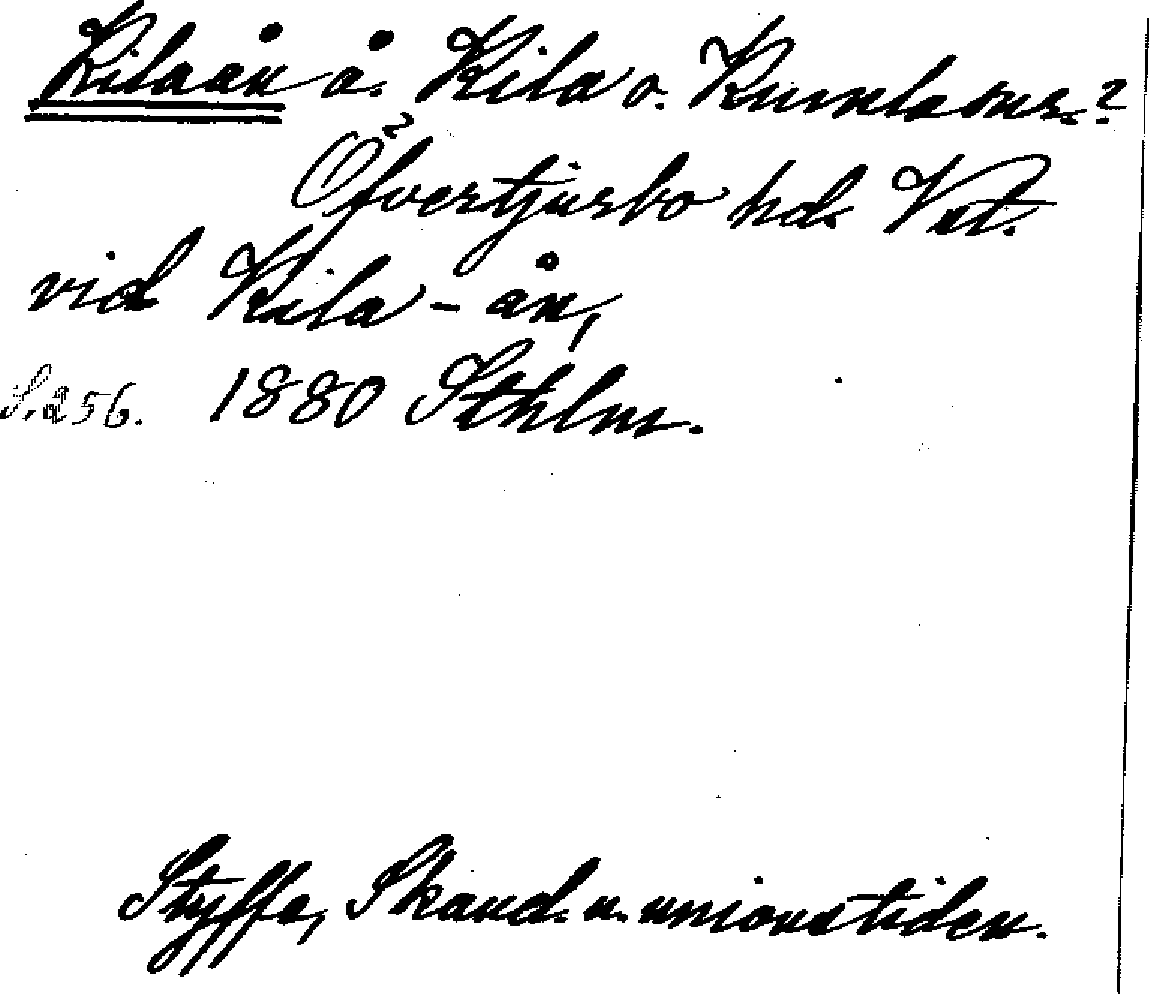 Kilaån å. Kila o. Kumla snr.?
Öfvertjurbo hd. Vst.
vid Kila-ån,
S. 256. 1880 Sthlm.
Styffe, Skand. u. unionstiden.